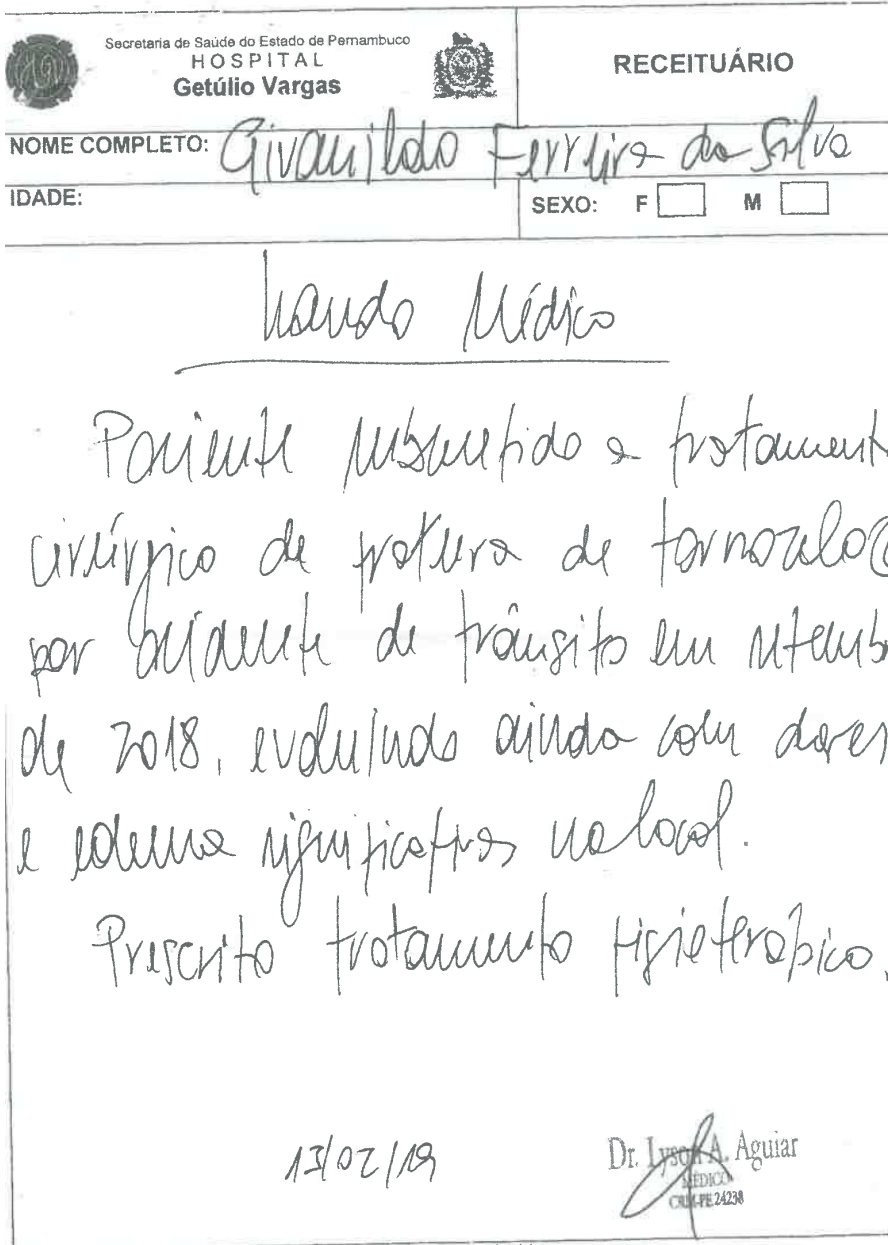 Secretaria de Saúde do Estado de Pernambuco
HOSPITAL
Getúlio Vargas
RECEITUÁRIO
NOME COMPLETO: Givanildo Ferreira da Silva
IDADE:
SEXO: F M
Laudo Médico
Paciente submetido a tratament
cirúrgico de fratura de tornozelo
por acidente de trânsito em setemb
de 2018, evoluindo ainda com dores
e edema significativos no local.
Prescrito tratamento fisioterápico.
13/02/19
Dr. Lyson A. Aguiar
MÉDICO
CRM-PE 24238